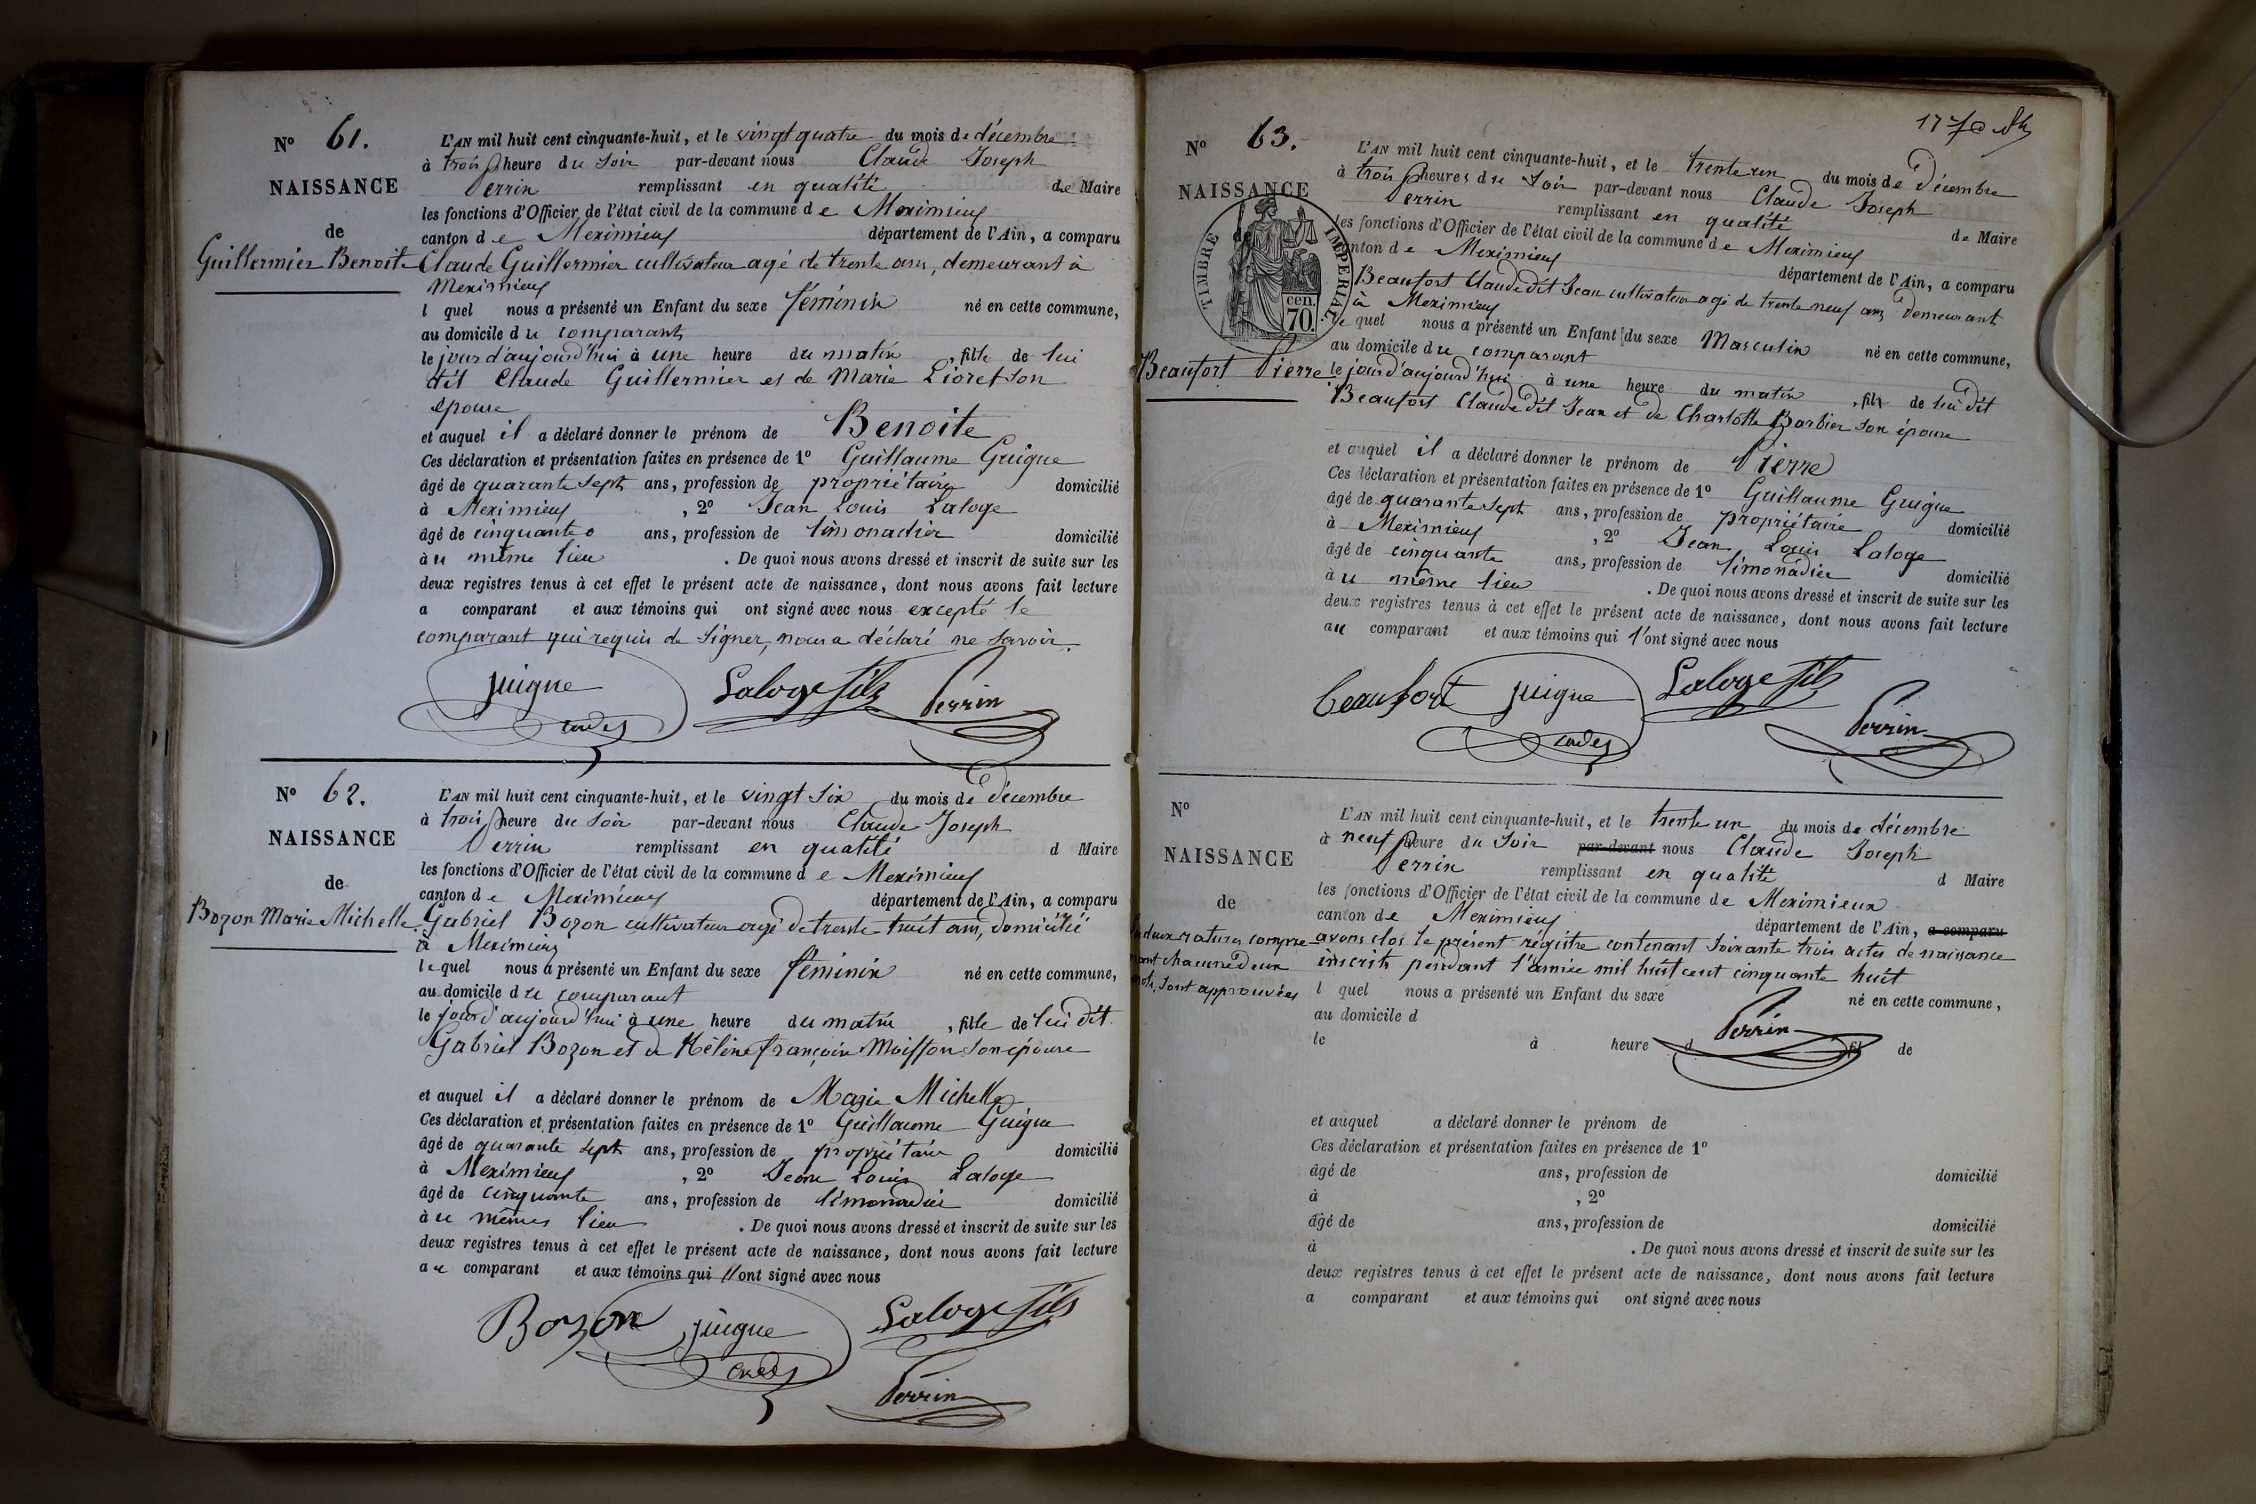 N° 61.
NAISSANCE
de
Guillermier Benoite
L'AN mil huit cent cinquante-huit, et le vingt quatre du mois de décembre
à trois heure du soir par-devant nous Claude Joseph
Perrin remplissant en qualité de Maire
les fonctions d'Officier de l'état civil de la commune de Meximieux
canton de Meximieux département de l'Ain, a comparu
Claude Guillermier cultivateur agé de trente ans, demeurant à
Meximieux
l quel nous a présenté un Enfant du sexe féminin né en cette commune,
au domicile du comparant
le jour d'aujourd'hui à une heure du matin, fille de lui
dit Claude Guillermier et de Marie Lioret son
épouse
et auquel il a déclaré donner le prénom de Benoite
Ces déclaration et présentation faites en présence de 1° Guillaume Guigue
âgé de quarante sept ans, profession de propriétaire domicilié
à Meximieux, 2° Jean Louis Laloge
âgé de cinquante ans, profession de limonadier domicilié
au même lieu. De quoi nous avons dressé et inscrit de suite sur les
deux registres tenus à cet effet le présent acte de naissance, dont nous avons fait lecture
a comparant et aux témoins qui ont signé avec nous excepté le
comparant qui requis de signer, nous a déclaré ne savoir.
guigue Laloge fils Perrin
N° 62.
NAISSANCE
de
Bozon Marie Michelle
L'AN mil huit cent cinquante-huit, et le vingt six du mois de décembre
à trois heure du soir par-devant nous Claude Joseph
Perrin remplissant en qualité d Maire
les fonctions d'Officier de l'état civil de la commune de Meximieux
canton de Meximieux département de l'Ain, a comparu
Gabriel Bozon cultivateur agé de trente huit ans, domicilié
à Meximieux
lequel nous a présenté un Enfant du sexe féminin né en cette commune,
au domicile du comparant
le jour d'aujourd'hui à une heure du matin, fille de lui dit
Gabriel Bozon et de Hélène françoise Moisson son épouse
et auquel il a déclaré donner le prénom de Marie Michelle
Ces déclaration et présentation faites en présence de 1° Guillaume Guigue
âgé de quarante sept ans, profession de propriétaire domicilié
à Meximieux, 2° Jean Louis Laloge
âgé de cinquante ans, profession de limonadier domicilié
au même lieu. De quoi nous avons dressé et inscrit de suite sur les
deux registres tenus à cet effet le présent acte de naissance, dont nous avons fait lecture
au comparant et aux témoins qui l'ont signé avec nous
Bozon guigue Laloge fils
Perrin
N° 63.
NAISSANCE
TIMBRE IMPERIAL
cen.
70.
Beaufort Pierre
L'AN mil huit cent cinquante-huit, et le trente un du mois de Décembre
à trois heures du soir par-devant nous Claude Joseph
Perrin remplissant en qualité de Maire
les fonctions d'Officier de l'état civil de la commune de Meximieux
canton de Meximieux département de l'Ain, a comparu
Beaufort Claude dit Jean cultivateur agé de trente neuf ans demeurant
à Meximieux
le quel nous a présenté un Enfant du sexe Masculin né en cette commune,
au domicile du comparant
le jour d'aujourd'hui à une heure du matin, fils de lui dit
Beaufort Claude dit Jean et de Charlotte Barbier son épouse
et auquel il a déclaré donner le prénom de Pierre
Ces déclaration et présentation faites en présence de 1° Guillaume Guigue
âgé de quarante sept ans, profession de propriétaire domicilié
à Meximieux, 2° Jean Louis Laloge
âgé de cinquante ans, profession de limonadier domicilié
au même lieu. De quoi nous avons dressé et inscrit de suite sur les
deux registres tenus à cet effet le présent acte de naissance, dont nous avons fait lecture
au comparant et aux témoins qui l'ont signé avec nous
beaufort guigue Laloge fils
Perrin
N°
NAISSANCE
de
deux ratures compre
nant chacune deux
mots, sont approuvées
L'AN mil huit cent cinquante-huit, et le trente un du mois de décembre
à neuf heure du soir par-devant nous Claude Joseph
Perrin remplissant en qualité d Maire
les fonctions d'Officier de l'état civil de la commune de Meximieux
canton de Meximieux département de l'Ain, a comparu
avons clos le présent registre contenant soixante trois actes de naissance
inscrits pendant l'année mil huit cent cinquante huit
l quel nous a présenté un Enfant du sexe né en cette commune,
au domicile d
Perrin
le à heure d fil de
et auquel a déclaré donner le prénom de
Ces déclaration et présentation faites en présence de 1°
âgé de ans, profession de domicilié
à , 2°
âgé de ans, profession de domicilié
à . De quoi nous avons dressé et inscrit de suite sur les
deux registres tenus à cet effet le présent acte de naissance, dont nous avons fait lecture
a comparant et aux témoins qui ont signé avec nous